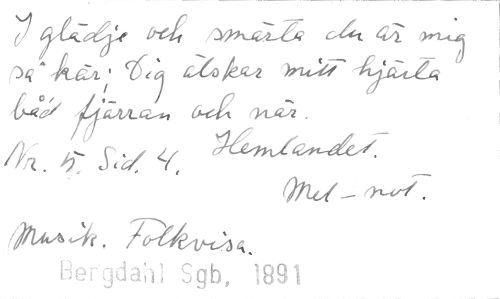 I glädje och smärta du är mig
så kär; Dig älskar mitt hjärta
båd fjärran och när.
Hemlandet.
Nr. 5. Sid. 4.
Mel-not.
Musik. Folkvisa.
Bergdahl Sgb, 1891